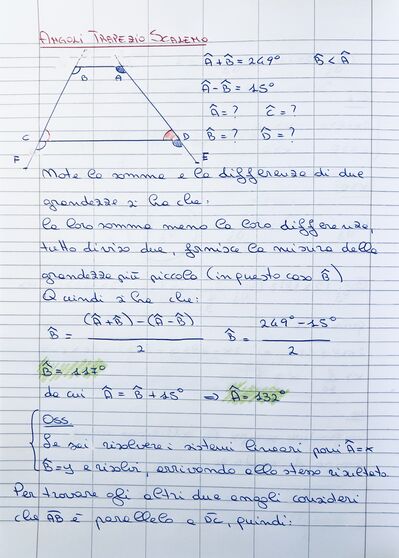 ANGOLI TRAPEZIO SCALENO
Â + B̂ = 249° B̂ < Â
Â - B̂ = 15°
Â = ? Ĉ = ?
B̂ = ? D̂ = ?
B A
C D
F E
Note la somma e la differenza di due
grandezze si ha che:
la loro somma meno la loro differenza,
tutto diviso due, fornisce la misura della
grandezza più piccola (in questo caso B̂)
Quindi si ha che:
B̂ = (Â+B̂)-(Â-B̂) / 2 B̂ = 249°-15° / 2
B̂ = 117°
da cui Â = B̂ + 15° ⇒ Â = 132°
Oss.
Se sai risolvere i sistemi lineari poni Â=x
B̂=y e risolvi, arrivando allo stesso risultato.
Per trovare gli altri due angoli consideri
che AB è parallelo a DC, quindi: